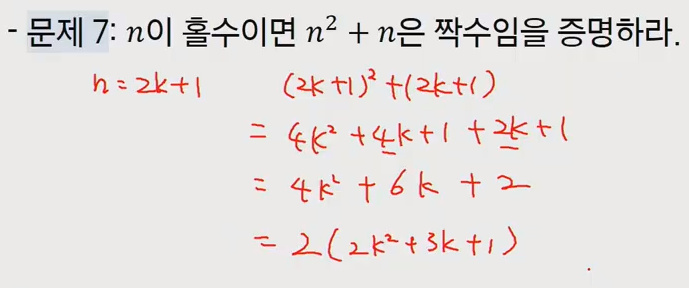 - 문제 7: n이 홀수이면 n² + n은 짝수임을 증명하라.
n = 2k+1 (2k+1)² + (2k+1)
= 4k² + 4k + 1 + 2k + 1
= 4k² + 6k + 2
= 2(2k² + 3k + 1)